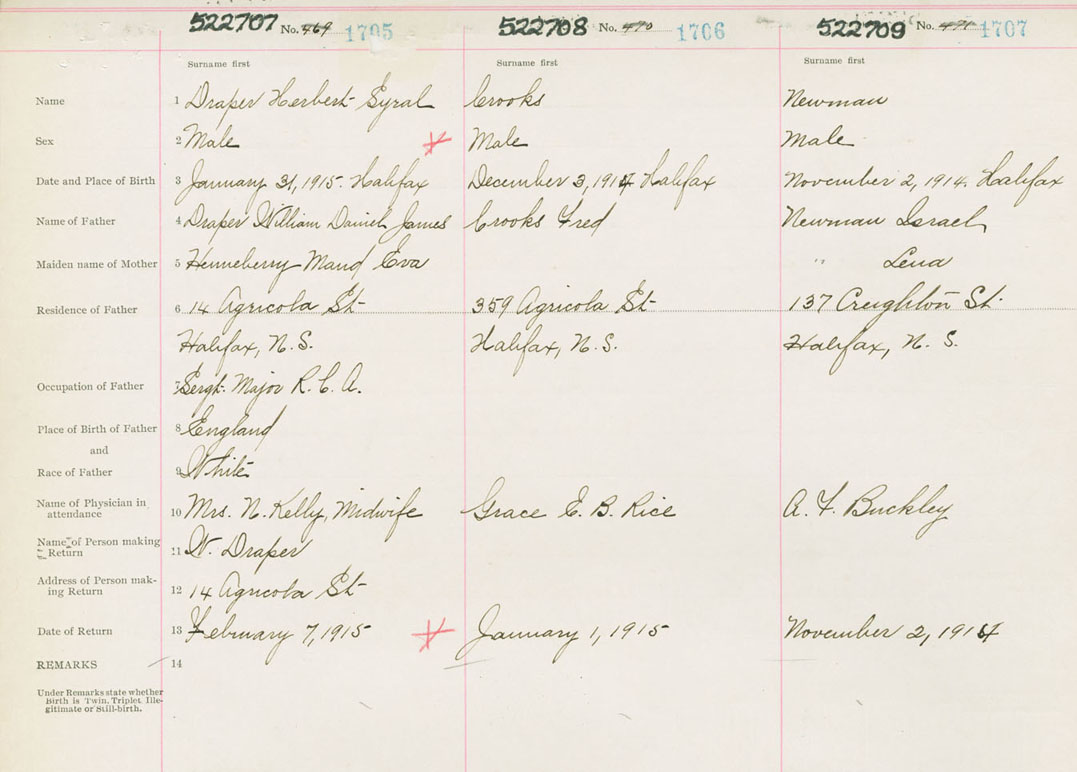 522707 No. 469 1705 522708 No. 470 1706 522709 No. 471 1707
Surname first Surname first Surname first
Name 1 Draper Herbert Syral Crooks Newman
Sex 2 Male Male Male
Date and Place of Birth 3 January 31, 1915. Halifax December 3, 1914 Halifax November 2, 1914. Halifax
Name of Father 4 Draper William Daniel James Crooks Fred Newman Israel
Maiden name of Mother 5 Henneberry Maud Eva " Lena
Residence of Father 6 14 Agricola St 359 Agricola St 137 Creighton St.
Halifax, N.S. Halifax, N.S. Halifax, N.S.
Occupation of Father 7 Sergt. Major R.C.A.
Place of Birth of Father 8 England
and
Race of Father 9 White
Name of Physician in
attendance 10 Mrs. N. Kelly, Midwife Grace E. B. Rice A. F. Buckley
Name of Person making
Return 11 W. Draper
Address of Person mak-
ing Return 12 14 Agricola St
Date of Return 13 February 7, 1915 January 1, 1915 November 2, 1914
REMARKS 14
Under Remarks state whether
Birth is Twin, Triplet, Ille-
gitimate or Still-birth.